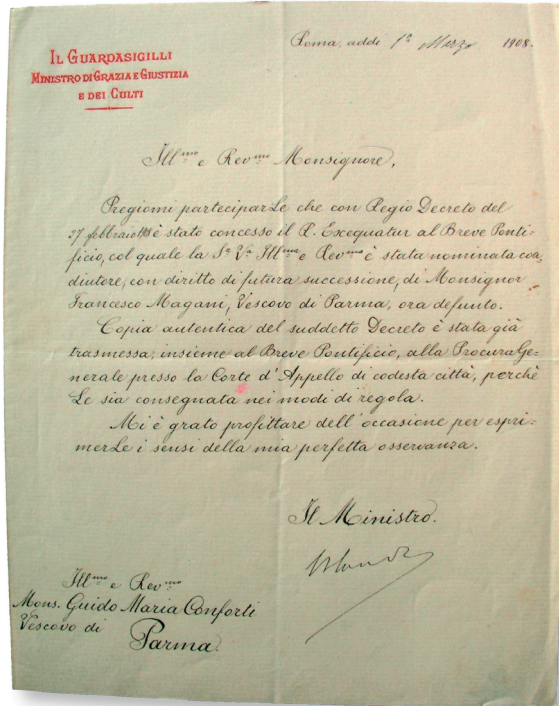 Roma, addì 1º Marzo 1908.
IL GUARDASIGILLI
MINISTRO DI GRAZIA E GIUSTIZIA
E DEI CULTI
Ill.mo e Rev.mo Monsignore,
Pregiomi parteciparLe che con Regio Decreto del
27 febbraio 1908 è stato concesso il R. Exequatur al Breve Ponti-
ficio, col quale la S.ª V.ª Ill.ma e Rev.ma è stata nominata coa-
diutore, con diritto di futura successione, di Monsignor
Francesco Magani, Vescovo di Parma, ora defunto.
Copia autentica del suddetto Decreto è stata già
trasmessa, insieme al Breve Pontificio, alla Procura Ge-
nerale presso la Corte d'Appello di codesta città, perchè
Le sia consegnata nei modi di regola.
Mi è grato profittare dell'occasione per espri-
merLe i sensi della mia perfetta osservanza.
Il Ministro.
Ill.mo e Rev.mo
Mons. Guido Maria Conforti
Vescovo di
Parma